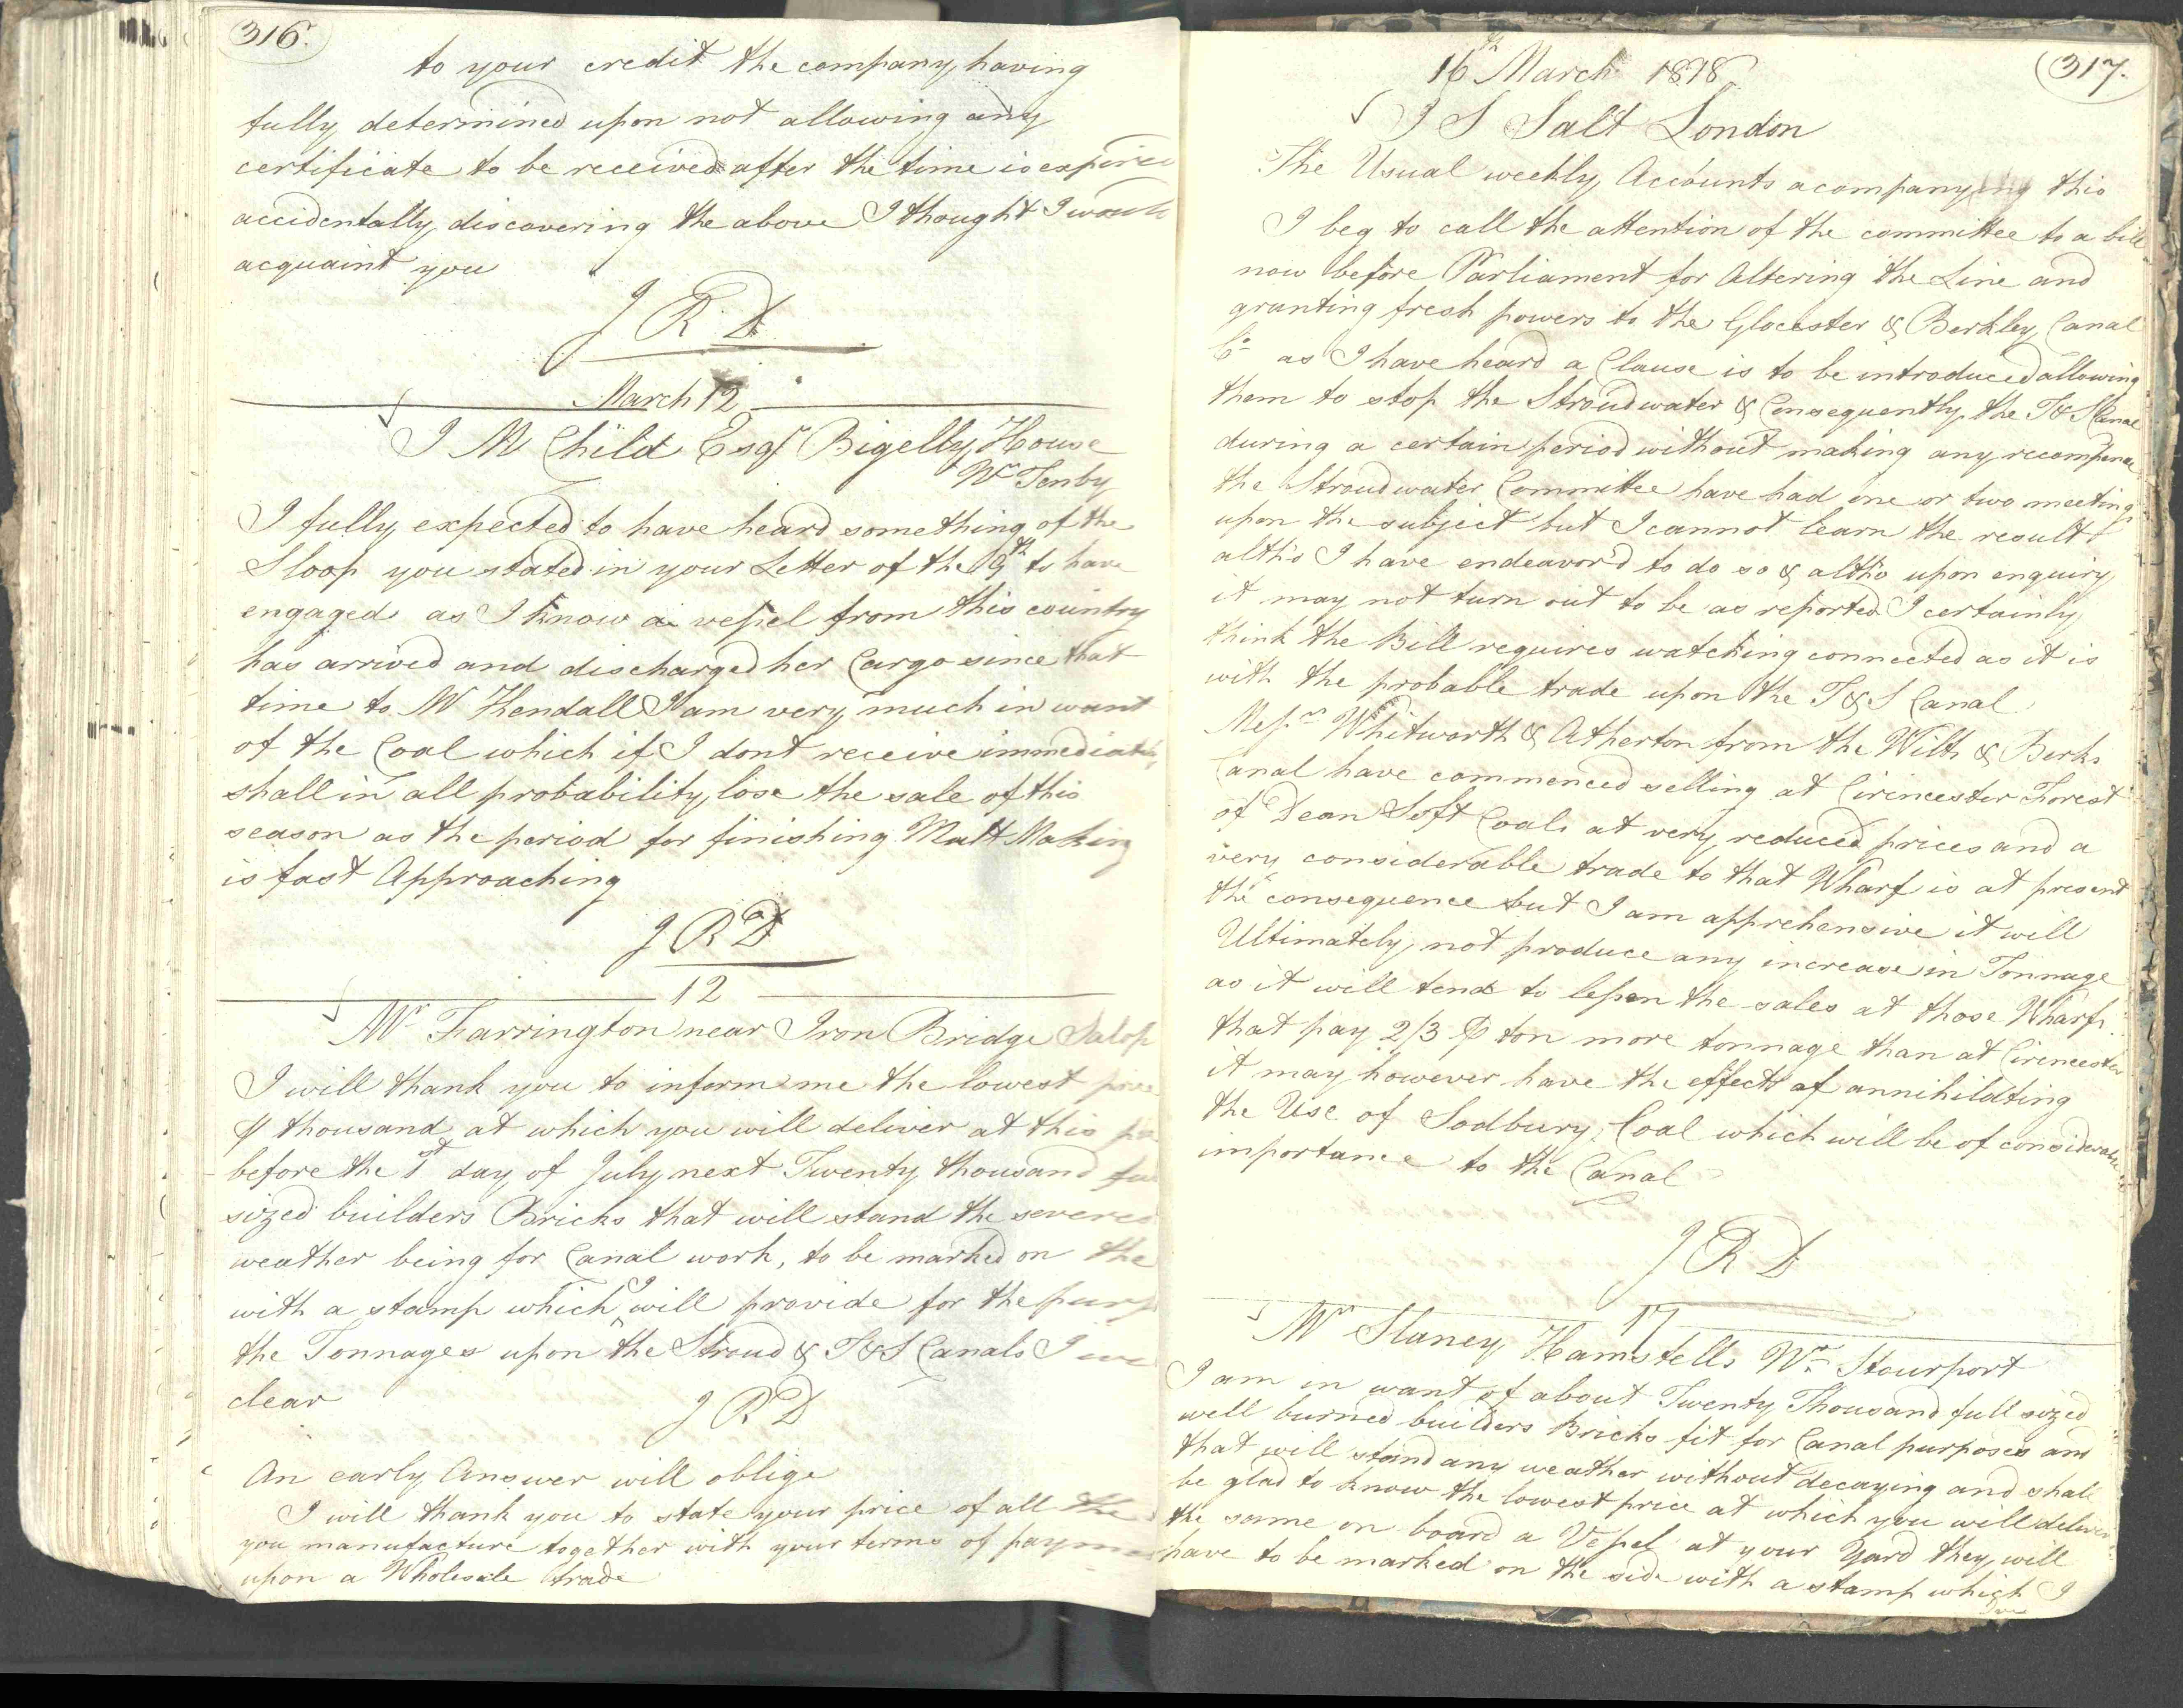 316.
to your credit the company having
fully determined upon not allowing any
certificate to be received after the time is expired
accidentally discovering the above I thought I would
acquaint you
J R D
March 12
I M Child Esqr Bigelly House
Nr Tenby
I fully expected to have heard something of the
Sloop you stated in your Letter of the 19th to have
engaged as I know a vessel from this country
has arrived and discharged her Cargo since that
time to Mr Kendall I am very much in want
of the Coal which if I dont receive immediately
shall in all probability lose the sale of this
season as the period for finishing Malt Making
is fast Approaching
J R D
12
Mr Farrington near Iron Bridge Salop
I will thank you to inform me the lowest price
⅌ thousand at which you will deliver at this
before the 1st day of July next Twenty thousand
sized builders Bricks that will stand the
weather being for Canal work, to be marked on the
with a stamp which I will provide for the
the Tonnages upon the Stroud & T&S Canals I
clear
J R D
An early Answer will oblige
I will thank you to state your price of all the
you manufacture together with your terms of
upon a Wholesale trade
317.
16th March 1818
I S Salt London
The Usual weekly Accounts acompanying this
I beg to call the attention of the committee to a bill
now before Parliament for Altering the Line and
granting fresh powers to the Glocester & Berkley Canal
Co as I have heard a Clause is to be introduced allowing
them to stop the Stroudwater & Consequently the T&S Canal
during a certain period without making any recompence
the Stroudwater Committee have had one or two meetings
upon the subject but I cannot learn the result
altho I have endeavor'd to do so & altho upon enquiry
it may not turn out to be as reported I certainly
think the Bill requires watching connected as it is
with the probable trade upon the T&S Canal
Messrs Whitworth & Atherton from the Wilts & Berks
Canal have commenced selling at Cirencester Forest
of Dean Soft Coals at very reduced prices and a
very considerable trade to that Wharf is at present
the consequence but I am apprehensive it will
Ultimately not produce any increase in Tonnage
as it will tend to lessen the sales at those Wharfs
that pay 2/3 ⅌ ton more tonnage than at Cirencester
it may however have the effect of annihildting
the Use of Sodbury Coal which will be of considerable
importance to the Canal
J R D
17
Mr Slaney Hamstells Nr Stourport
I am in want of about Twenty Thousand full sized
well burned builders Bricks fit for Canal purposes and
that will stand any weather without decaying and shall
be glad to know the lowest price at which you will deliver
the same on board a Vessel at your Yard they will
have to be marked on the side with a stamp which I